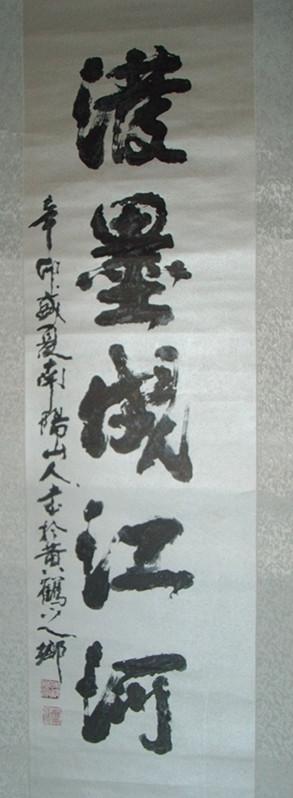 潑墨成江河
辛卯盛夏南陽山人書於黃鶴之鄉